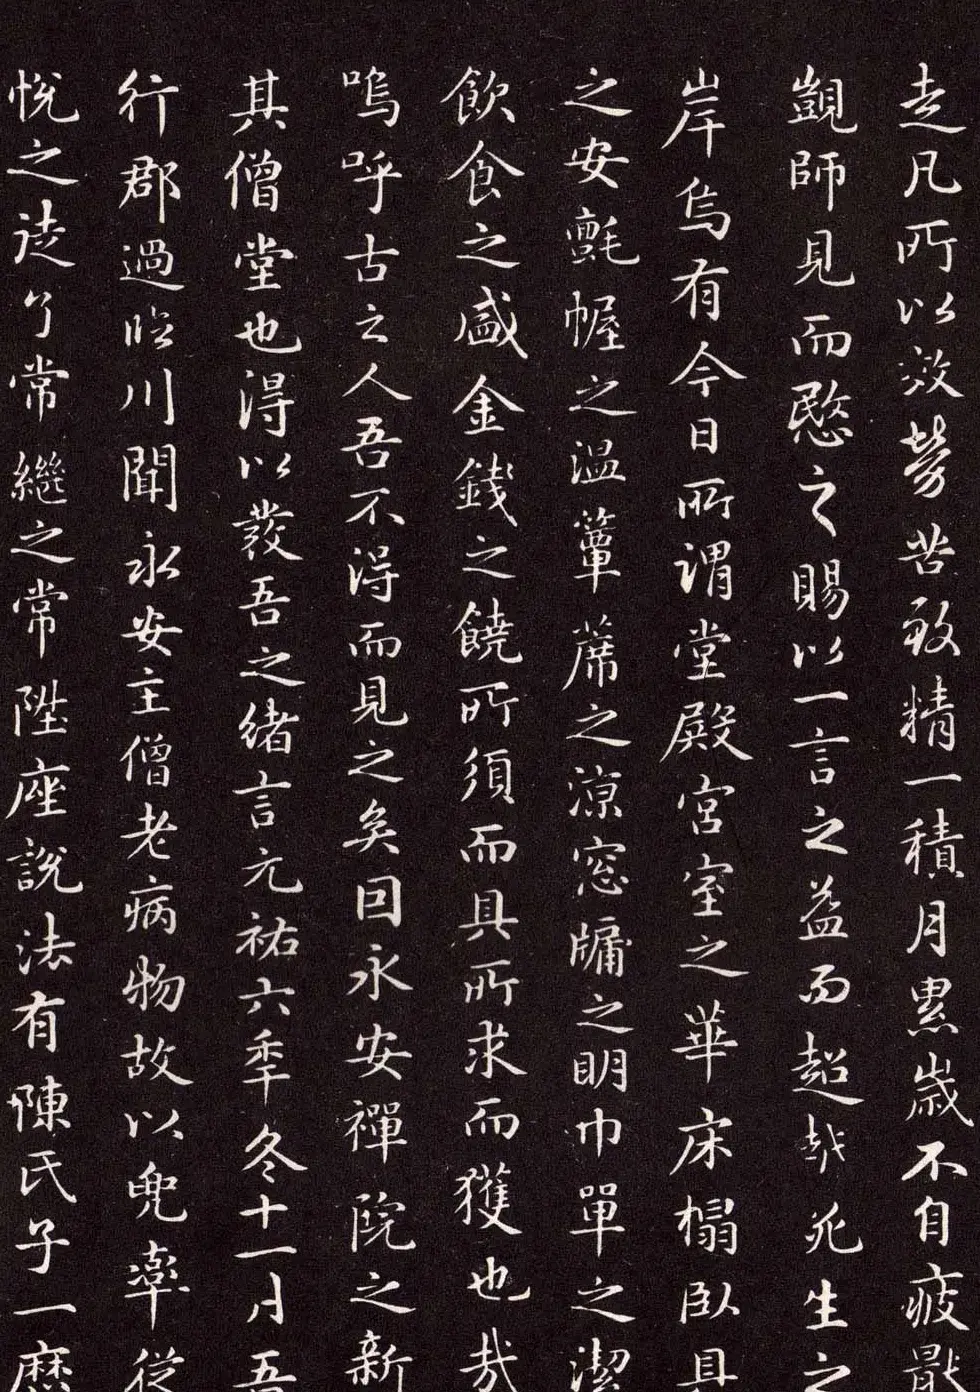 走凡所以效勞苦致精一積月累歳不自疲
覬師見而愍之賜以一言之益而超越死生之
岸烏有今日所謂堂殿宮室之華床榻臥具
之安氈幄之温簟蓆之涼窓牖之明巾單之潔
飲食之盛金錢之饒所須而具所求而獲也哉
嗚呼古之人吾不得而見之矣因永安禪院之新
其僧堂也得以發吾之緒言元祐六秊冬十一月吾
行郡過臨川聞永安主僧老病物故以兜率從
悅之徒了常繼之常陞座說法有陳氏子一歷